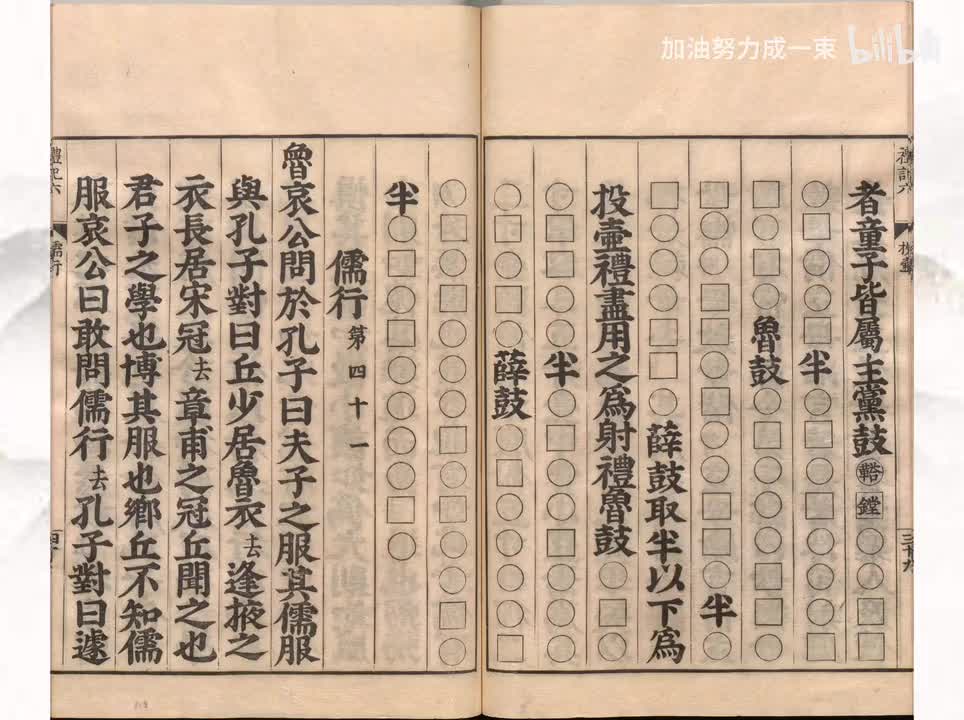 加油努力成一束 bilibili
禮記六 投壺 三十九
者童子皆屬主黨鼓鞳鏜○○□□
○□○□○半○□○□○○○□
□○□○魯鼓○□○○○□□○
□○○□○□□○○○□○半○
□○○○□□○薛鼓取半以下爲
投壺禮盡用之爲射禮魯鼓○□○
○□○○○半○□○○□○□○
□□○□○薛鼓○□○○○○□
○□○□○○○□○□○○□○
半○□○□○○○○□○
儒行第四十一
魯哀公問於孔子曰夫子之服其儒服
與孔子對曰丘少居魯衣去逢掖之
衣長居宋冠去章甫之冠丘聞之也
君子之學也博其服也鄉丘不知儒
服哀公曰敢問儒行去孔子對曰遽
禮記六 儒行